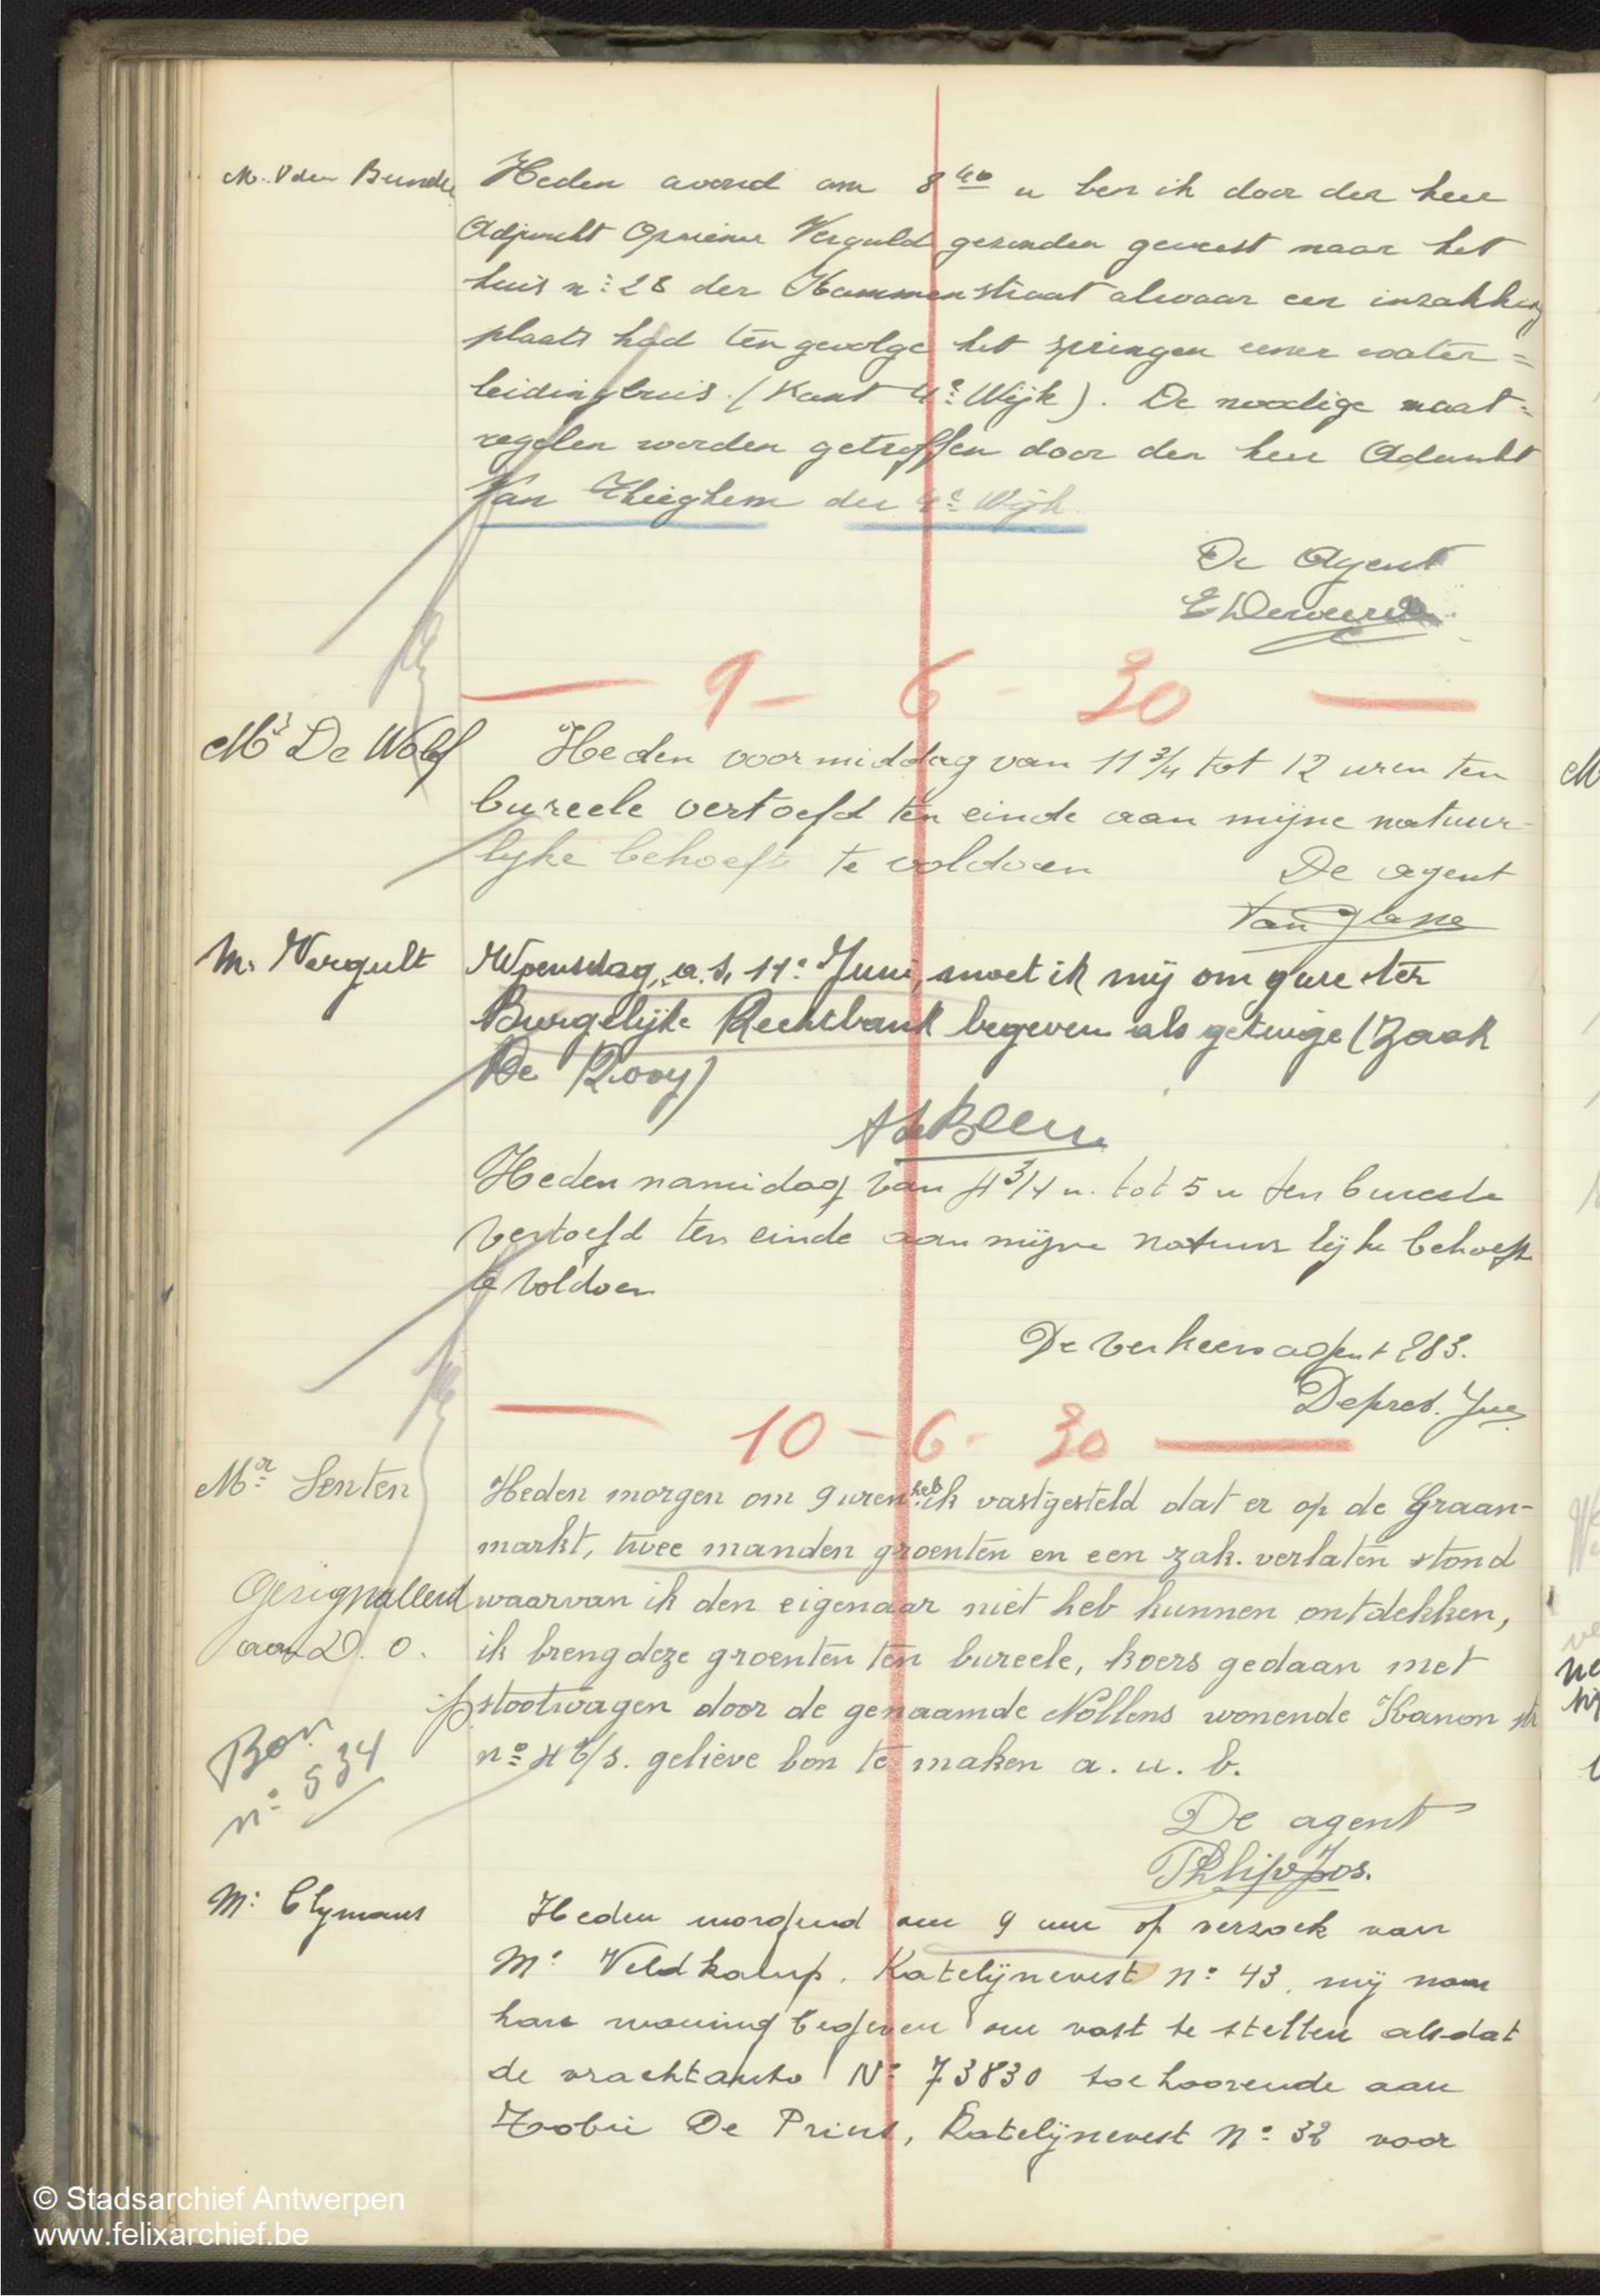 M. V den Bunder
Heden avond om 8 40 u ben ik door den heer
Adjunckt Opziener Verguld gezonden geweest naar het
huis n: 28 der Kammenstraat alwaar een inzakking
plaats had ten gevolge het springen eener water=
leidingbuis. (Kant 4e Wijk). De noodige maat=
regelen worden getroffen door den heer Adunkt
Van Thieghem der 4e Wijk
De Agent
9 - 6 - 30
Mr De Wolf
Heden voormiddag van 11 3/4 tot 12 uren ten
bureele vertoefd ten einde aan mijne natuur-
lyke behoefte te voldoen
De agent
M. Vergult
Woensdag, a. s, 11e Juni, moet ik mij om 9 ure ter
Burgelijke Rechtbank begeven als getuige (Zaak
De Rooy)
Heden namidag van 4 3/4 u. tot 5 u ten bureele
vertoefd ten einde aan mijne natuurlijke behoeft
te voldoen
De verkeersagent 283.
Depret. Jue
10 - 6 - 30
Mr Senten
Heden morgen om 9 uren heb ik vastgesteld dat er op de Graan-
markt, twee manden groenten en een zak. verlaten stond
Gesignalleerd
waarvan ik den eigenaar niet heb kunnen ontdekken,
aan D. O.
ik breng deze groenten ten bureele, koers gedaan met
stootwagen door de genaamde Nollens wonende Kanon str
Bon
n: 534
n: 46/3. gelieve bon te maken a. u. b.
De agent
Philips Jos.
M: Clymans
Heden morgend om 9 uur op verzoek van
M: Veldkamp. Katelijnevest n: 43, mij naar
hare woning begeven om vast te stellen als dat
de vrachtauto N: 73830 toehoorende aan
Tobie De Prins, Katelijnevest N: 32 voor
© Stadsarchief Antwerpen
www.felixarchief.be